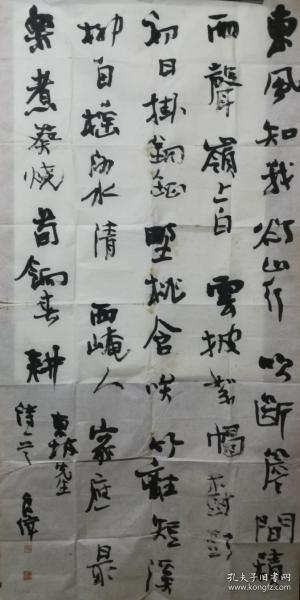 東風知我欲山行吹斷簷間積
雨聲嶺上白雲披絮帽樹頭
初日掛銅鉦野桃含笑竹籬短溪
柳自搖沙水清西崦人家應最
樂煮葵燒筍餉春耕
東坡先生
詩一首
孔夫子旧书网